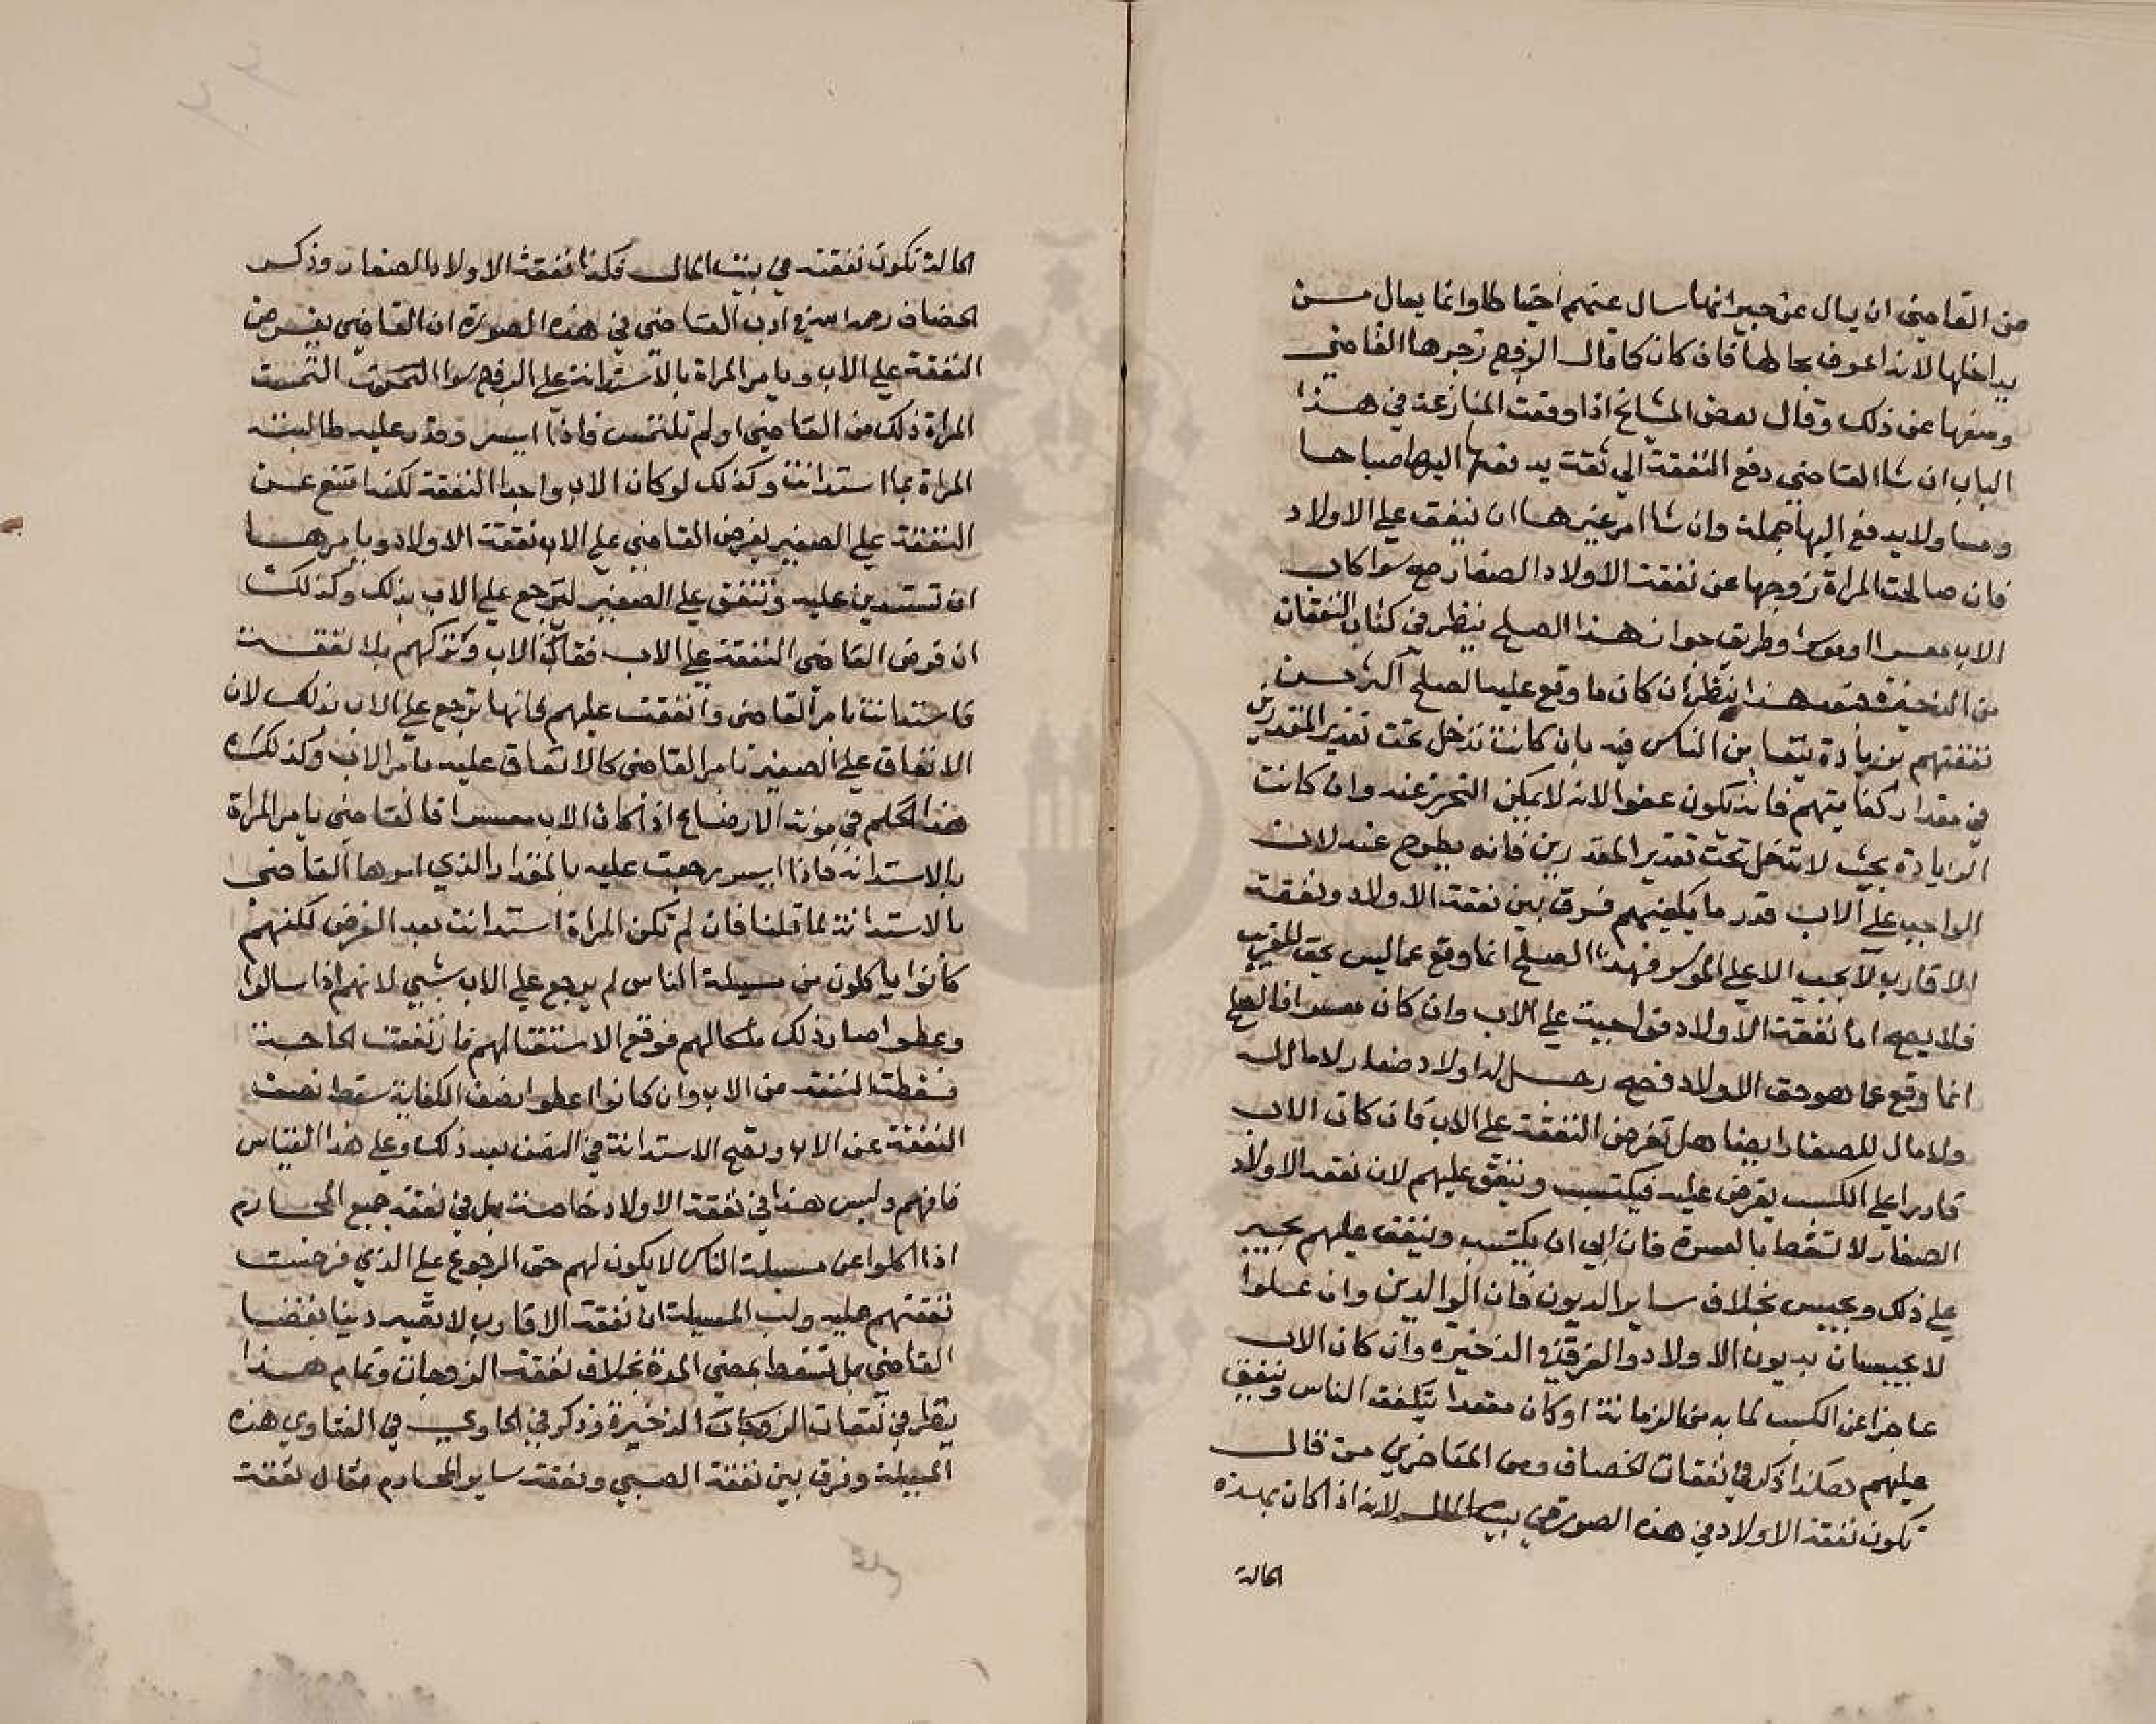 من القاضي ان يسال عن جيرانها سال عنهم احتياطا وانما يسال مــن
يداخلها لانه اعرف بحالها فان كان كما قال الزوج زجرها القاضي
ومنعها عن ذلك وقال بعض المشايخ اذا وقعت المنازعة في هــذا
الباب ان شا القاضي دفع النفقة الي ثقة يدفعها اليها صباحــا
ومسا ولا يدفع اليها جملة وان شا امر غيرهــا ان ينفق علي الاولاد
فان صالحت المراة زوجها عن نفقة الاولاد الصغار صح سوا كان
الاب معسرا او موسرا وطريق جواز هذا الصلح ينظر في كتاب النفقات
من الذخيرة هذا ينظر ان كان ما وقع عليه الصلح اكثر مــن
نفقتهم بزيادة يتغابن الناس فيه بان كانت تدخل تحت تقدير المقدرين
في مقدار كفايتهم فانه يكون عفوا لانه لا يمكن التحرز عنه وان كانت
الزيادة بحيث لا تدخل تحت تقدير المقدرين فانه يطرح عنه لان
الواجب علي الاب قدر ما يكفيهم فرق بين نفقة الاولاد ونفقة
الاقارب لا يجب الا علي الموسر فهذا الصلح انما وقع عما ليس بحق للقريب
فلا يصح اما نفقة الاولاد فواجبة علي الاب وان كان معسرا فالصلح
انما وقع عما هو حق الاولاد فصح رجــل له اولاد صغار لا مال له
ولا مال للصغار ايضا هل تفرض النفقة علي الاب فان كان الاب
قادرا علي الكسب يفرض عليه فيكتسب وينفق عليهم لان نفقة الاولاد
الصغار لا تسقط بالعسرة فان ابي ان يكتسب وينفق عليهم يجبر
علي ذلك ويحبس بخلاف ساير الديون فان الوالدين وان عــلوا
لا يحبسان بديون الاولاد والفرق في الذخيرة وان كان الاب
عاجزا عن الكسب لما به من الزمانة او كان مقعدا يتكفف الناس وينفق
عليهم هكذا ذكر في نفقات الخصاف ومن المتاخرين من قال
تكون نفقة الاولاد في هذه الصورة في بيت المال لانه اذا كان بهذه
الحالة
الحالة تكون نفقته في بيت المال فكذا نفقة الاولاد الصغار وذكــر
الخصاف رحمه الله في ادب القاضي في هذه الصورة ان القاضي يفــرض
النفقة علي الاب ويامر المراة بالاستدانة علي الزوج سوا التمست
المراة ذلك من القاضي او لم تلتمس فاذا ايسر وقدر عليه طالبته
المراة بما استدانت وكذلك لو كان الاب واجدا النفقة لكنه امتنع عــن
النفقة علي الصغير يفرض القاضي علي الاب نفقة الاولاد ويامرهــا
ان تستدين عليه وتنفق علي الصغير لترجع علي الاب بذلك وكذلك
ان فرض القاضي النفقة علي الاب فغاب الاب وتركهم بلا نفقــة
فاستدانت بامر القاضي وانفقت عليهم فانها ترجع علي الاب بذلك لان
الانفاق علي الصغير بامر القاضي كالانفاق عليه بامر الاب وكذلك
هذا الحكم في مونة الارضاع اذا كان الاب معسرا فالقاضي يامر المراة
بالاستدانة فاذا ايسر رجعت عليه بالمقدار الذي امرها القاضي
بالاستدانة لما قلنا فان لم تكن المراة استدانت بعد الفرض لكنهم
كانوا ياكلون من مسيلة الناس لم يرجع علي الاب بشي لانهم اذا سالوا
وعطوا صار ذلك ملكا لهم فوقع الاستغنا لهم فارتفعت الحاجــة
فسقطت النفقة عن الاب وان كانوا اعطوا نصف الكفاية سقط نصف
النفقة عن الاب وتصح الاستدانة في النصف بعد ذلك وعلي هذا القياس
فافهم وليس هذا في نفقة الاولاد خاصة بل في نفقة جميع المحــارم
اذا اكلوا عن مسيلة الناس لا يكون لهم حق الرجوع علي الذي فرضت
نفقتهم عليه ولب المسيلة ان نفقة الاقارب لا تصير دينا بقضــا
القاضي بل تسقط بمضي المدة بخلاف نفقة الزوجات وتمام هــذا
ينظر في نفقات الزوجات الذخيرة وذكر في الحاوي في الفتاوي هذه
المسيلة وفرق بين نفقة الصبي ونفقة ساير المحارم فقال نفقة